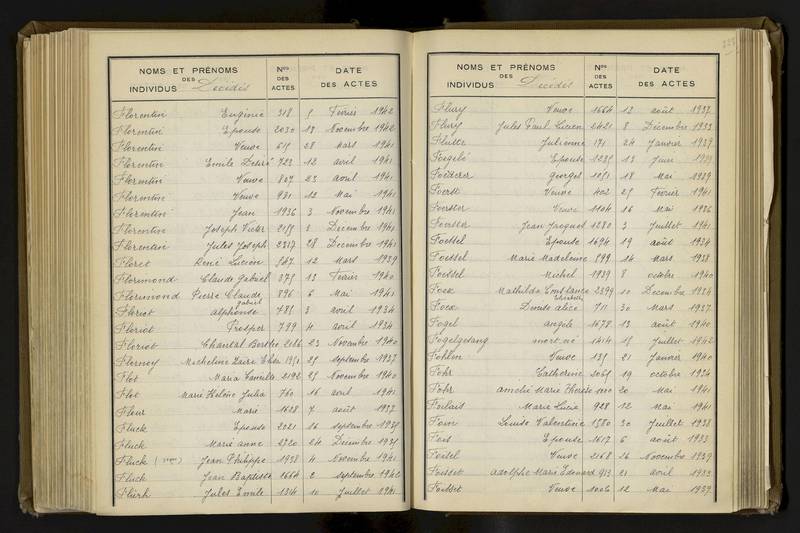 NOMS ET PRÉNOMS
DES
INDIVIDUS Décédés
Nos
DES
ACTES
DATE
DES ACTES
Florentin Eugénie 318 5 Février 1942
Florentin Epouse 2030 13 Novembre 1942
Florentin Veuve 615 28 Mars 1941
Florentin Emile Désiré 723 12 avril 1941
Florentin Veuve 807 23 avril 1941
Florentin Veuve 931 12 Mai 1941
Florentin Jean 1936 3 Novembre 1941
Florentin Joseph Victor 2155 8 Décembre 1941
Florentin Jules Joseph 2317 28 Décembre 1941
Floret René Lucien 547 12 Mars 1939
Florimond Claude Gabriel 375 13 Février 1940
Florimond Pierre Claude Gabriel 896 6 Mai 1941
Floriot alphonse 785 3 avril 1934
Floriot Prosper 799 4 avril 1934
Floriot Chantal 2186 23 Novembre 1940
Micheline 25 septembre 1937
Flot Maria Camille 2192 25 Novembre 1940
Flot Marie Helène Julia 760 16 avril 1941
Fleur Marie 1628 7 août 1937
Fluck Epouse 2021 16 septembre 1935
Fluck Marie anne 2720 24 Décembre 1935
Fluck Jean Philippe 1938 4 Novembre 1941
Fluck Jean Baptiste 1664 2 septembre 1942
Flürh Jules Emile 1314 10 Juillet 1941
NOMS ET PRÉNOMS
DES
INDIVIDUS Décédés
Nos
DES
ACTES
DATE
DES ACTES
Flury Veuve 1664 13 août 1937
Flury Jules Paul Lucien 2421 8 Décembre 1933
Flutte Julienne 171 24 Janvier 1939
Foegelé Epouse 1235 13 Juin 1939
Foederer georges 1051 18 Mai 1939
Foerst Veuve 402 25 Février 1941
Foerster Veuve 1104 16 Mai 1936
Foerster Jean Jacques 1280 3 Juillet 1941
Foessel Epouse 1694 19 août 1934
Foessel Marie Madeleine 599 14 Mars 1938
Foessel Michel 1939 8 octobre 1940
Foex Mathilde Constance Elisabeth 2399 10 Décembre 1934
Foex Denise alice 711 30 Mars 1937
Fogel angele 1678 13 août 1940
Fogelgesang mort né 1414 15 Juillet 1942
Fohlen Veuve 135 21 Janvier 1940
Fohr Catherine 2065 19 octobre 1934
Fohr amélie Marie Thérèse 1000 20 Mai 1941
Foilais Marie Lucie 928 12 Mai 1941
Foin Louise Valentine 1580 30 Juillet 1938
Fois Epouse 1617 6 août 1933
Foisel Veuve 2168 26 Novembre 1939
Foisset adolphe Marie Edouard 913 21 avril 1933
Foisset Veuve 1006 12 Mai 1937